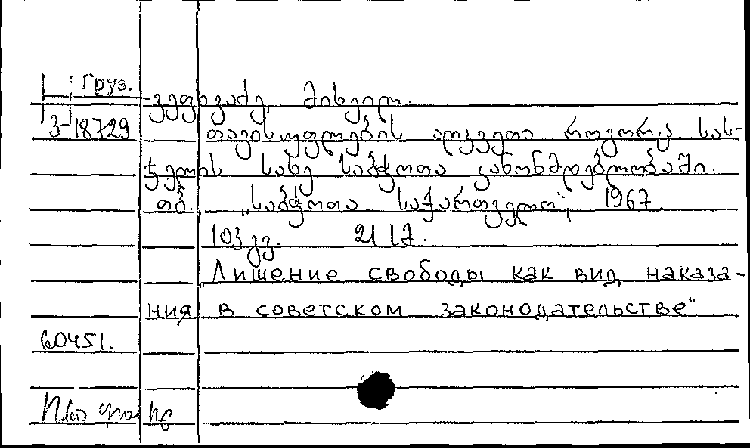 Груз.
ვეფხვაძე მიხეილ.
3-18729 თავისუფლების აღკვეთა როგორც სას-
ჯელის სახე საბჭოთა კანონმდებლობაში.
თბ. „საბჭოთა საქართველო", 1967
103 გვ. 21 სმ.
Лишение свободы как вид наказа-
ния в советском законодательстве"
60451.